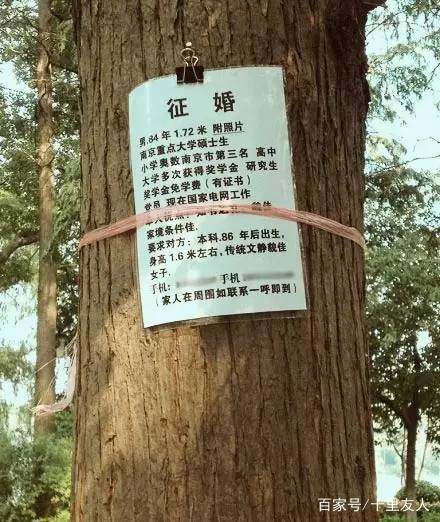 征婚
男.84年1.72米 附照片
南京重点大学硕士生
小学奥数南京市第三名 高中
大学多次获得奖学金 研究生
奖学金免学费(有证书)
党员 现在国家电网工作
貌佳
家境条件佳.
要求对方:本科.86年后出生,
身高1.6米左右,传统文静貌佳
女子.
手机: 手机
(家人在周围如联系一呼即到)
百家号/十里友人